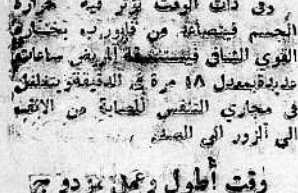 وفى ذات الوقت تؤثر فيه حرارة
الجسم فيتصاعد من قارورته بخاره
القوي الشافي فيستنشقه المريض ساعات
عديدة بمعدل ١٨ مرة في الدقيقة ويتغلغل
في مجاري التنفس المصابة من الانف
الى الزور الى الصدر
وقت أطول وعمل مزدوج